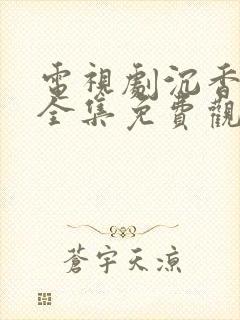 電視劇沉香
全集免費觀
蒼宇天涼